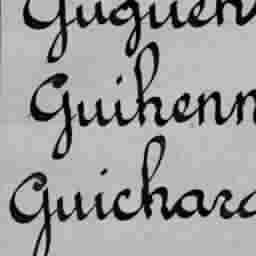 Guguen
Guihenn
Guichard